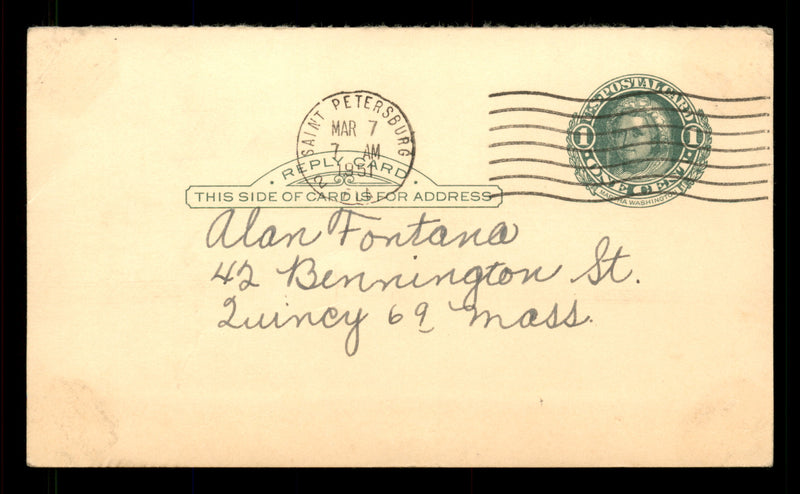 SAINT PETERSBURG
MAR 7
7 AM
1951
2
U.S. POSTAL CARD
1 1
ONE CENT
MARTHA WASHINGTON
REPLY CARD
THIS SIDE OF CARD IS FOR ADDRESS
Alan Fontana
42 Bennington St.
Quincy 69 Mass.